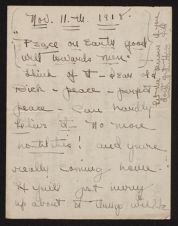 Nov. 11-th 1918.
"Peace on Earth good
will towards men"
think of it - dear old
- peace - perfect
peace - Can hardly
believe it - No more
hostilities! and you're
really coming home.
if you'll just hurry
up about it things will be